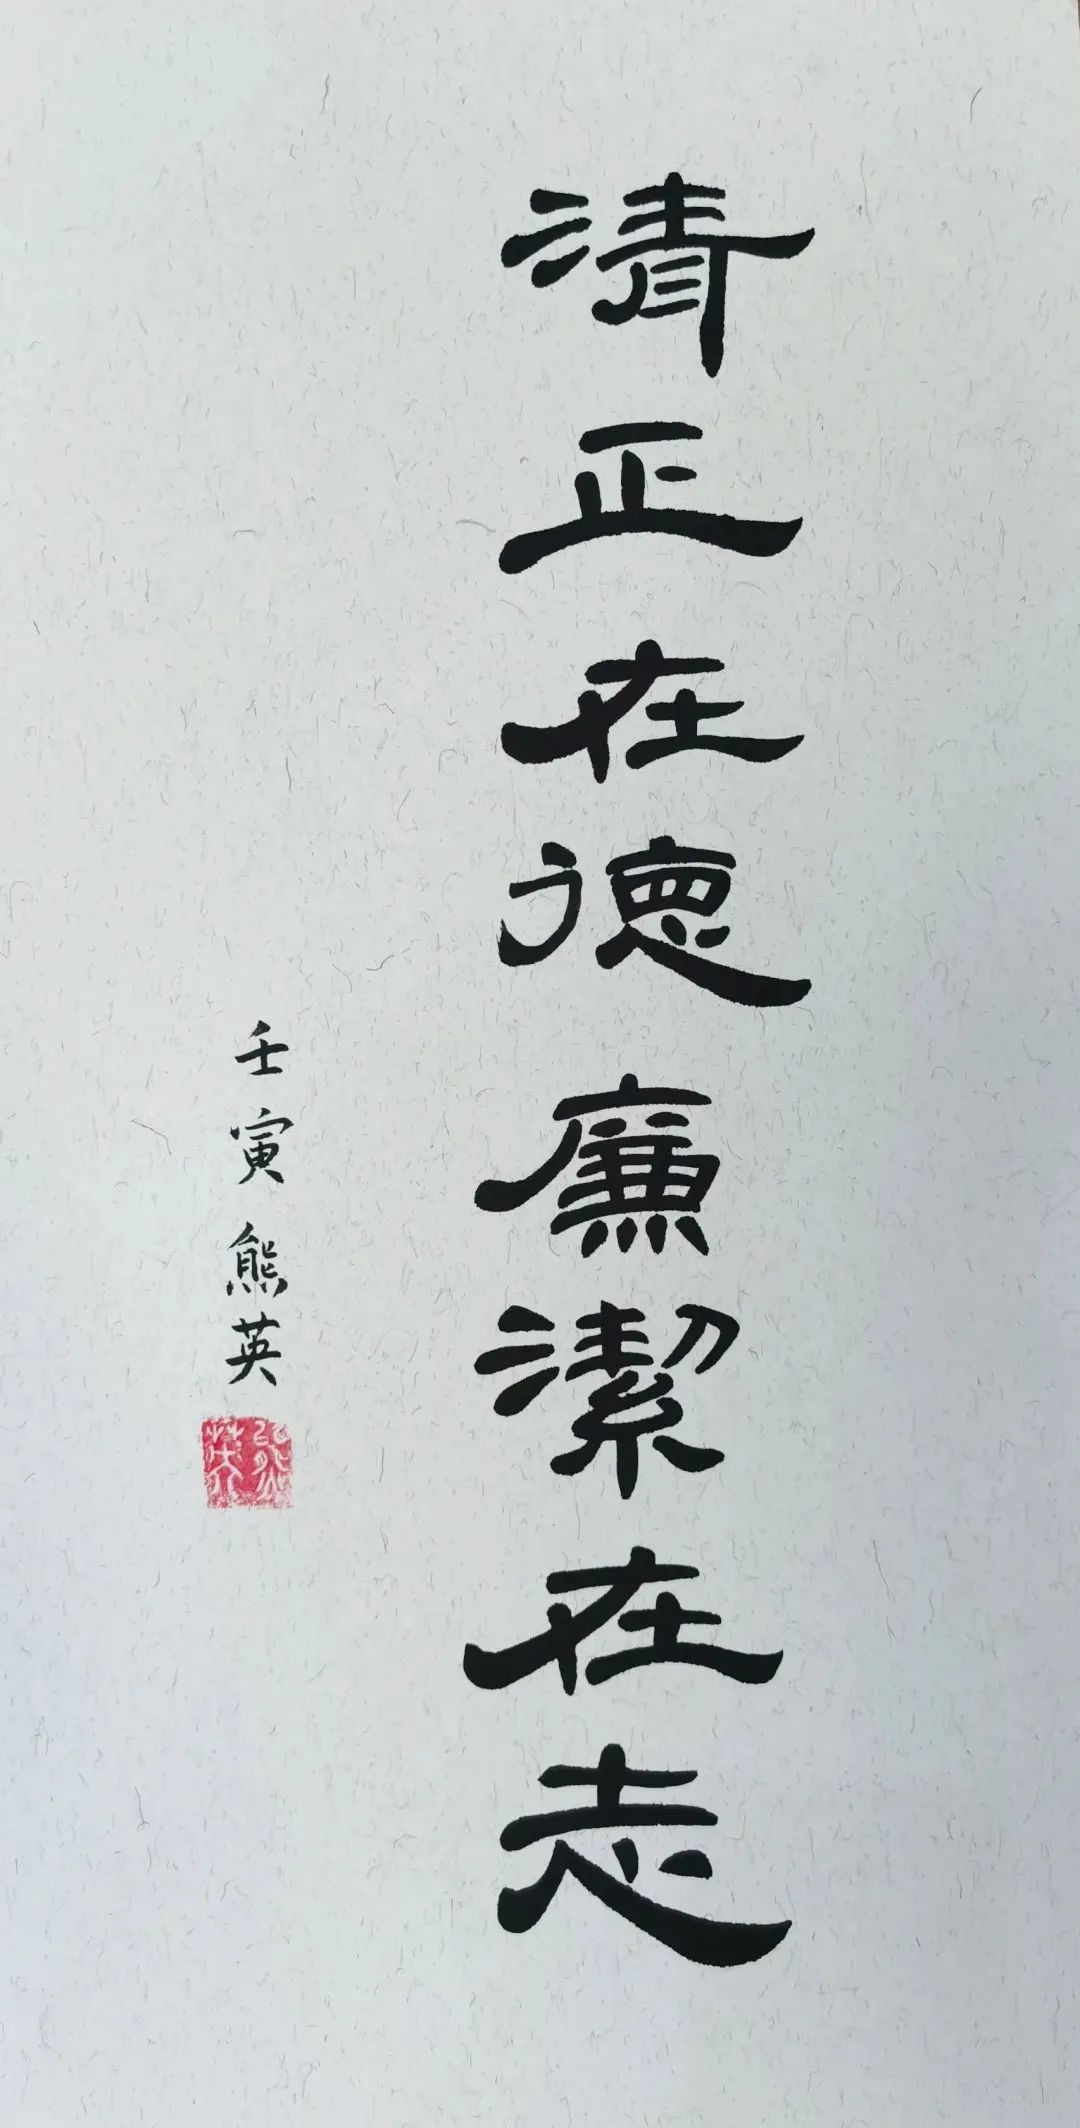 清正在德廉潔在志
壬寅熊英
熊英